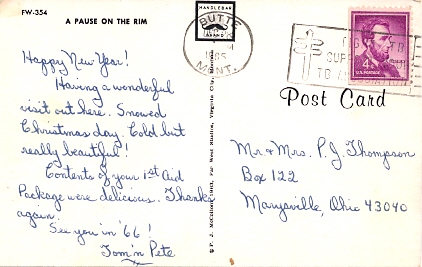 FW-354
A PAUSE ON THE RIM
HANDLEBAR
BRAND
BUTTE
MONT.
4¢
U.S. POSTAGE
Post Card
Happy New Year!
Having a wonderful
visit out here. Snowed
Christmas day. Cold but
really beautiful!
Contents of your 1st Aid
Package were delicious. Thanks
again.
See you in '66!
Tom 'n Pete
Mr & Mrs. P. J. Thompson
Box 122
Marysville, Ohio 43040